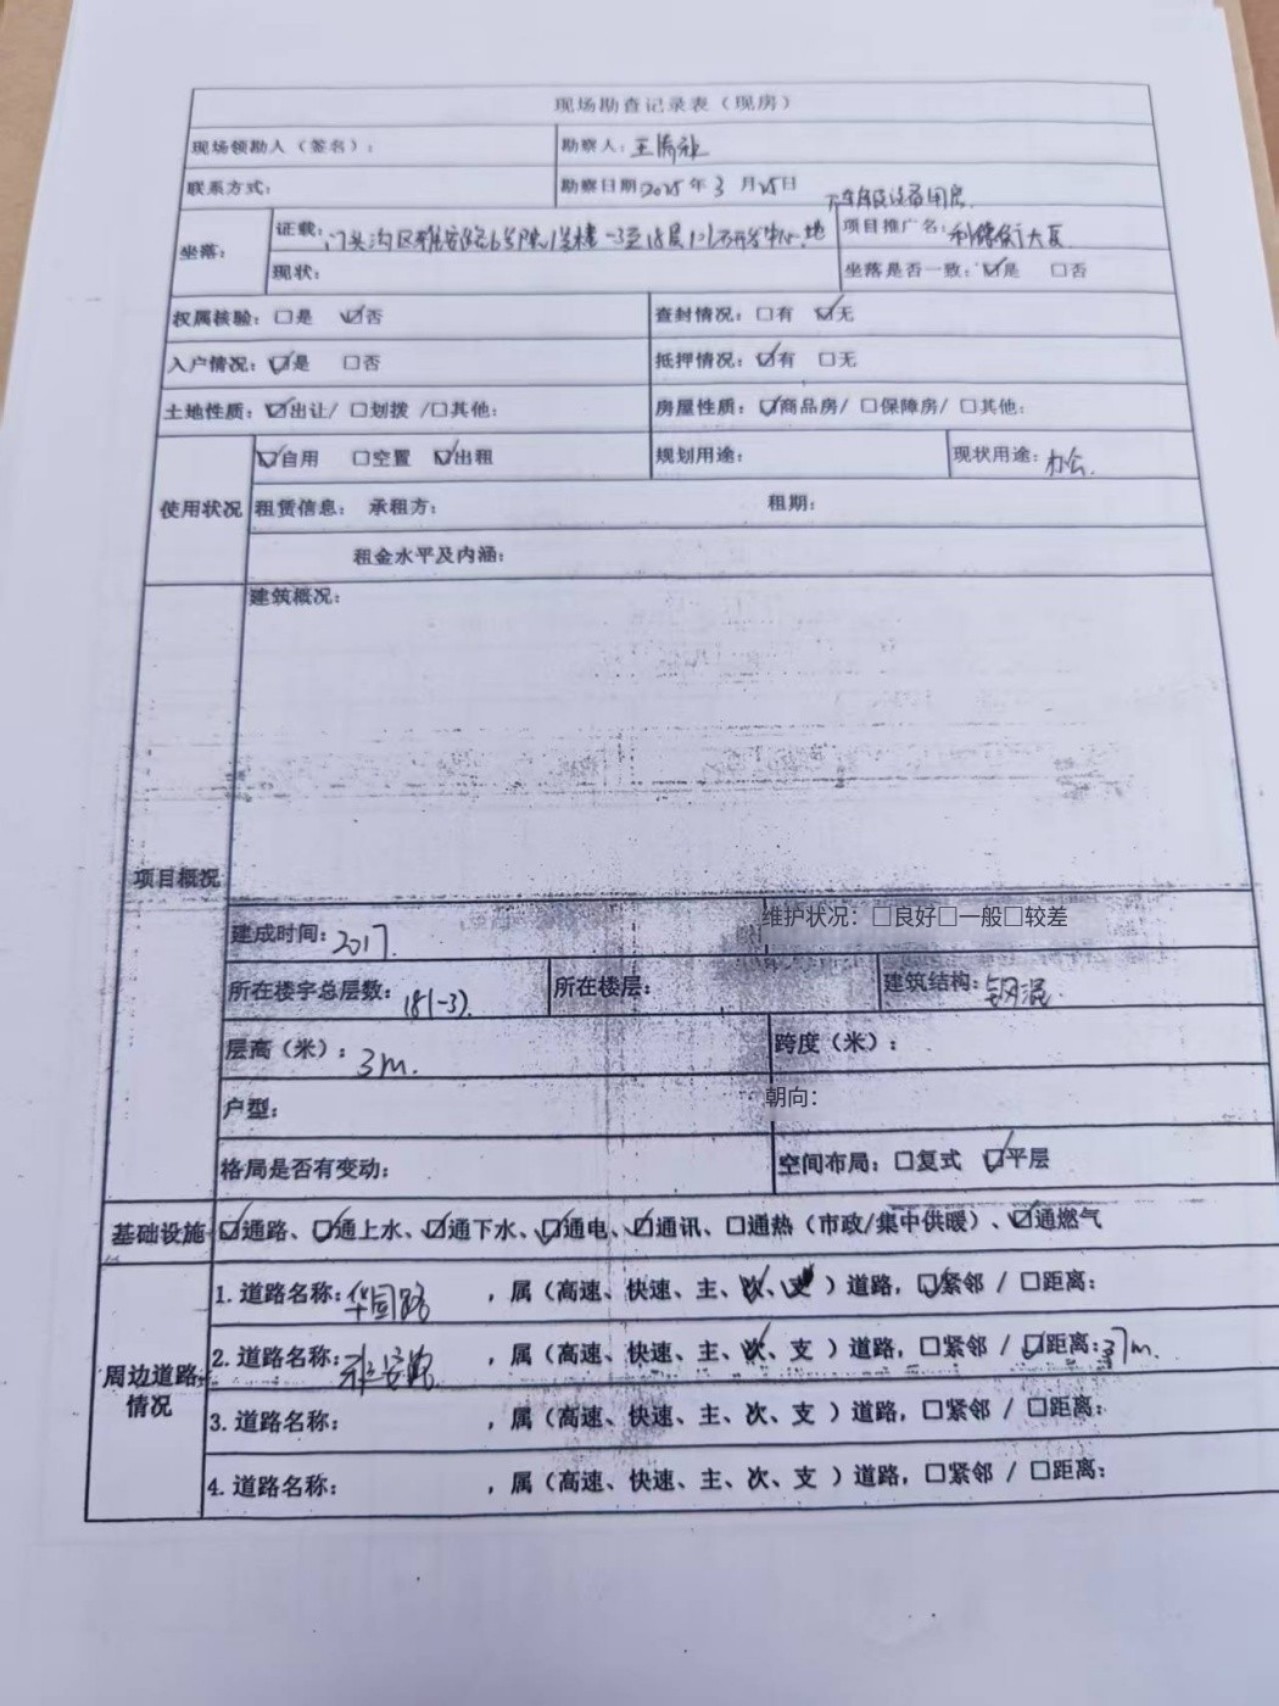 现场勘查记录表（现房）
现场领勘人（签名）： 勘察人：王
联系方式： 勘察日期2025年3月25日
坐落： 证载：门头沟区雅安路6号院1号楼-3至18层101 地下车库及设备用房 项目推广名：利德衡大厦
现状： 坐落是否一致：☑是 □否
权属核验：□是 ☑否 查封情况：□有 ☑无
入户情况：☑是 □否 抵押情况：☑有 □无
土地性质：☑出让/ □划拨 /□其他： 房屋性质：☑商品房/ □保障房/ □其他：
使用状况 ☑自用 □空置 ☑出租 规划用途： 现状用途：办公.
租赁信息： 承租方： 租期：
租金水平及内涵：
项目概况 建筑概况：
建成时间：2017. 维护状况：□良好□一般□较差
所在楼宇总层数：18(-3). 所在楼层： 建筑结构：钢混.
层高（米）：3m. 跨度（米）：
户型： 朝向：
格局是否有变动： 空间布局：□复式 ☑平层
基础设施 ☑通路、☑通上水、☑通下水、☑通电、☑通讯、□通热（市政/集中供暖）、☑通燃气
周边道路情况 1. 道路名称：华园路 ，属（高速、快速、主、次、支 ）道路，☑紧邻 / □距离：
2. 道路名称：雅安路 ，属（高速、快速、主、次、支 ）道路，□紧邻 / ☑距离：37m.
3. 道路名称： ，属（高速、快速、主、次、支 ）道路，□紧邻 / □距离：
4. 道路名称： ，属（高速、快速、主、次、支 ）道路，□紧邻 / □距离：